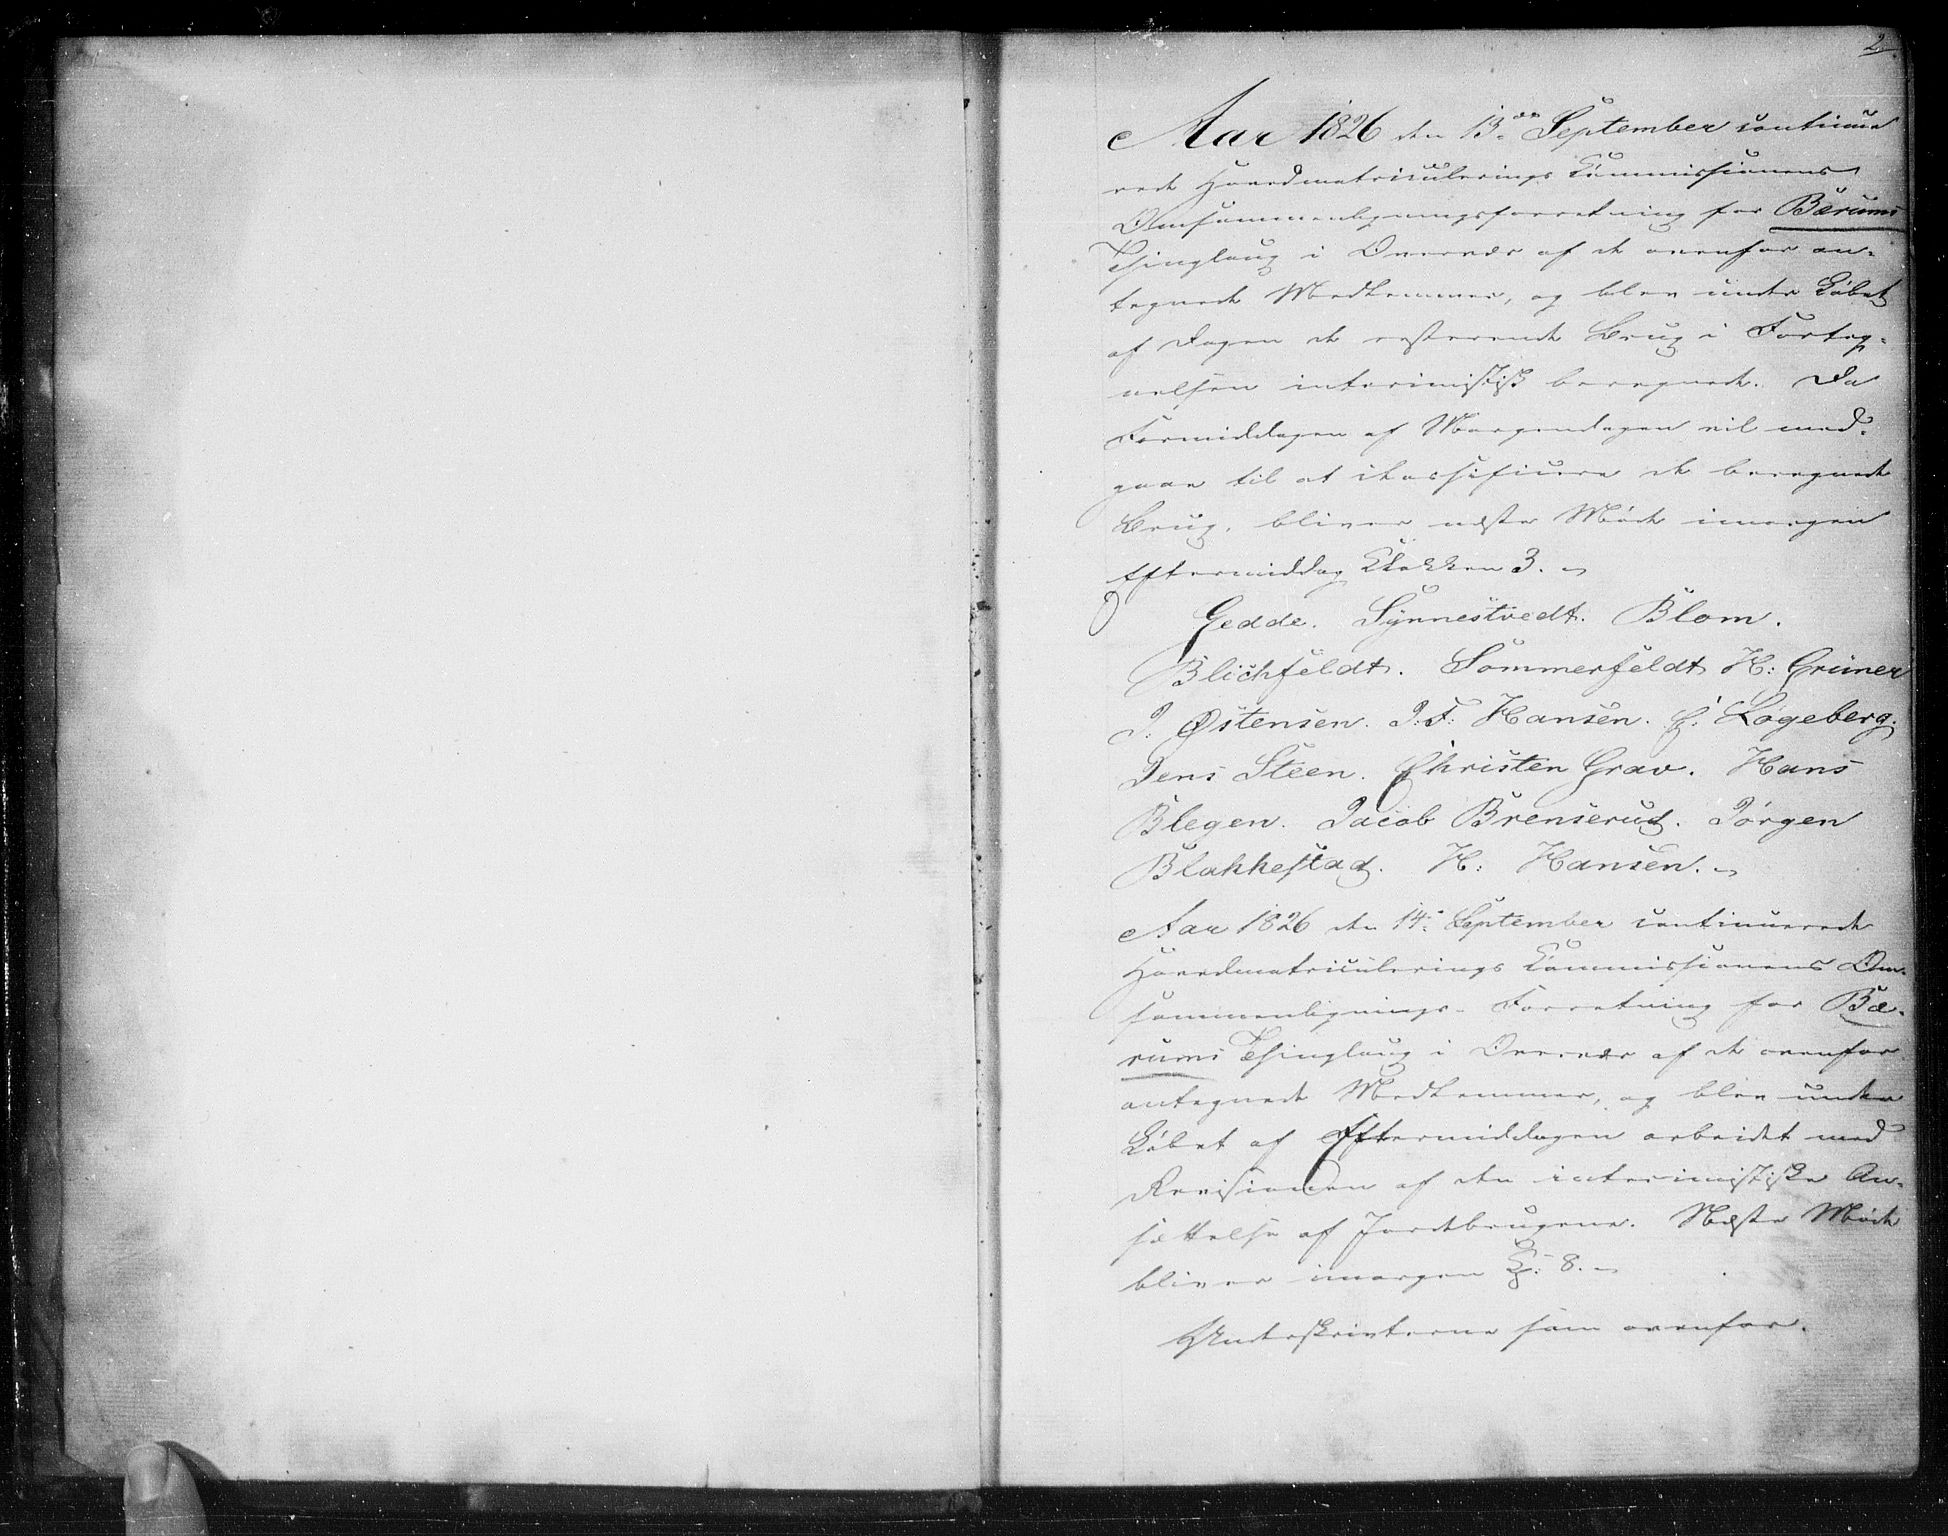 2
Aar 1826 den 13de September continue
rede Hovedmatriculerings Commissionens
Omsammenligningsforretning for Bærums
Thinglaug i Overvær af de ovenfor an-
tegnede Medlemmer, og blev under Løbet
af Dagen de resterende Brug i Forteg-
nelsen interimistisk beregnede. Da
Formiddagen af Morgendagen vil med-
gaae til at classificere de beregnede
Brug, bliver næste Møde imorgen
Eftermiddag Klokken 3.
Gedde. Synnestvedt. Blom.
Blichfeldt. Sommerfeldt H: Grüner
J: Østensen. J: F: Hansen. Løgeberg.
Jens Steen. Christen Grav. Hans
Blegen. Jacob Brenserud. Jørgen
Blakkestad. H: Hansen.
Aar 1826 den 14: September continuerede
Hovedmatriculerings Commissionens Om-
sammenlignings-Forretning for Bæ-
rums Thinglaug i Overvær af de ovenfor
antegnede Medlemmer, og blev under
Løbet af Eftermiddagen arbeidet med
Revisionen af den interimistiske An-
sættelse af Jordbrugene. Næste Møde
bliver imorgen Kl: 8.
Underskrivterne som ovenfor.